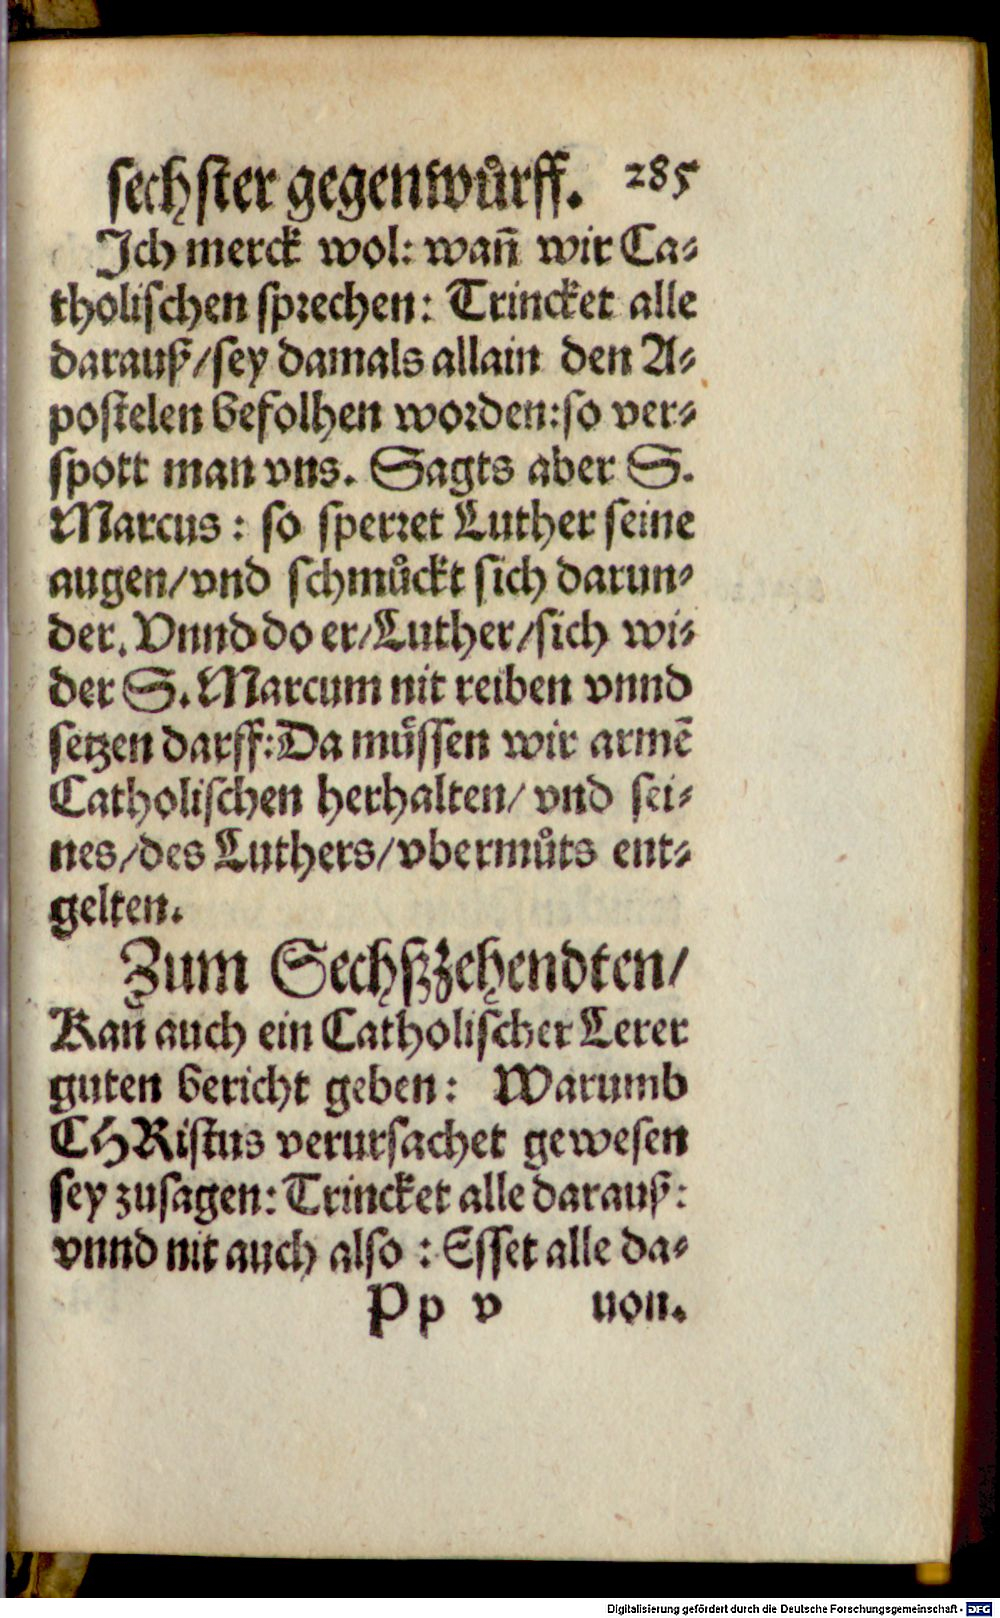 sechster gegenwůrff. 285
Ich merck wol: wañ wir Ca⸗
tholischen sprechen: Trincket alle
darauß/sey damals allain den A⸗
postelen befolhen worden:so ver⸗
spott man vns. Sagts aber S.
Marcus: so sperret Luther seine
augen/vnd schmůckt sich darun⸗
der. Vnnd do er/Luther/sich wi⸗
der S. Marcum nit reiben vnnd
setzen darff:Da můssen wir armē
Catholischen herhalten/ vnd sei⸗
nes/des Luthers/vbermůts ent⸗
gelten.
Zum Sechßzehendten/
Kañ auch ein Catholischer Lerer
guten bericht geben: Warumb
CHRistus verursachet gewesen
sey zusagen: Trincket alle darauß:
vnnd nit auch also : Esset alle da⸗
Pp v uon.
Digitalisierung gefördert durch die Deutsche Forschungsgemeinschaft - DFG